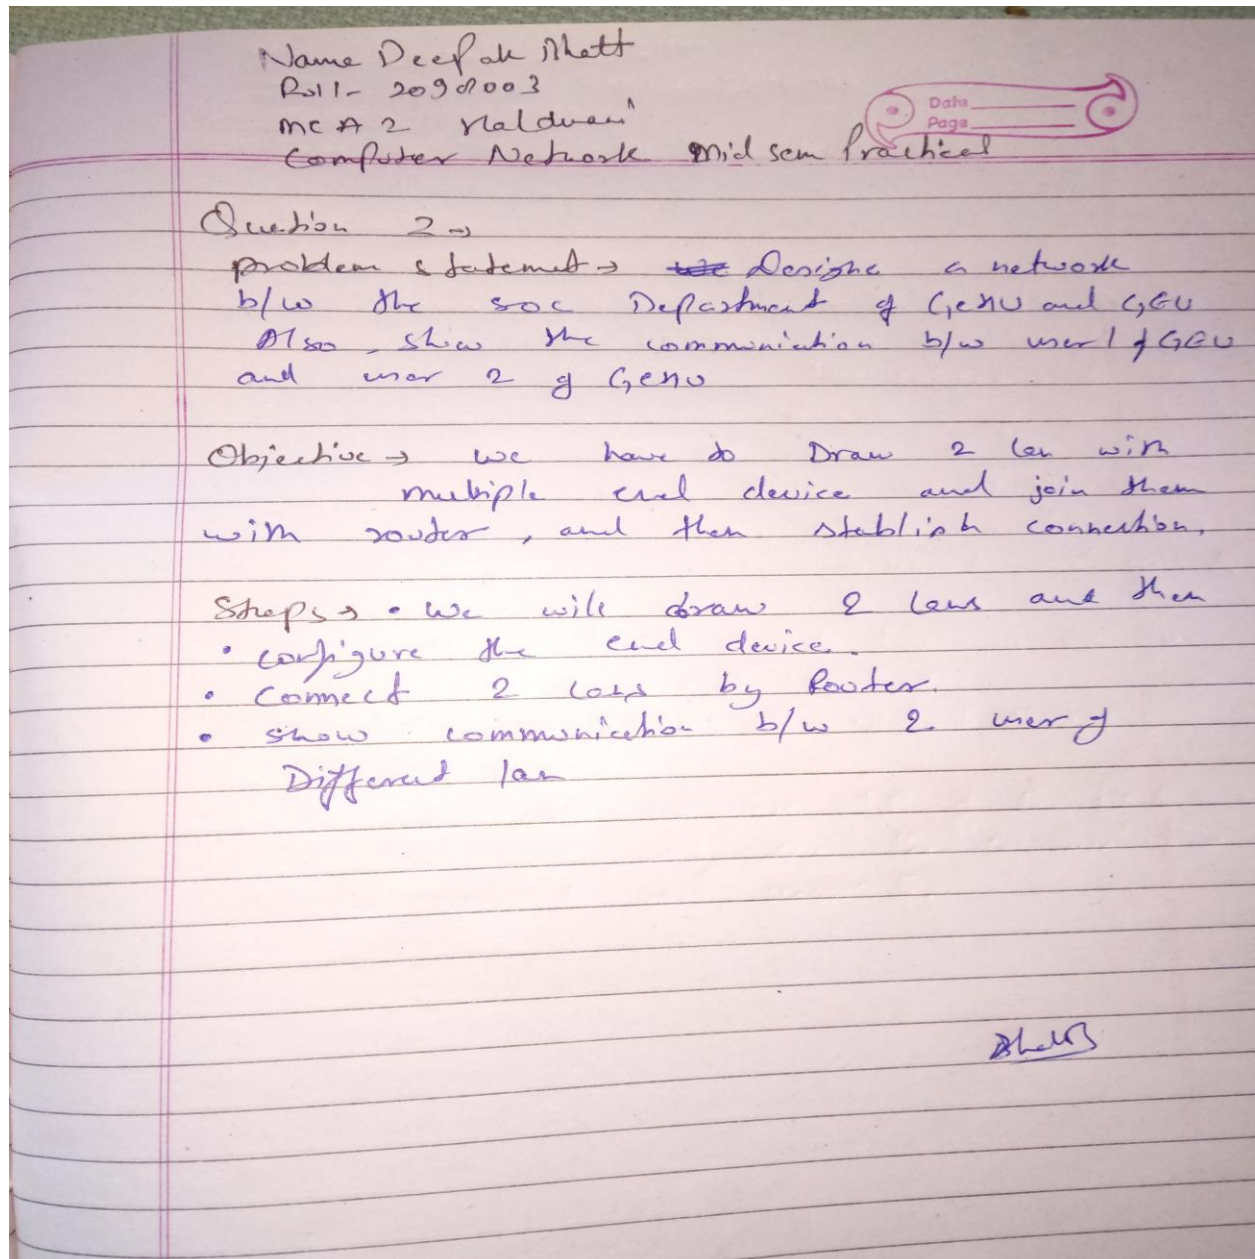 Name Deepak Bhatt
Roll- 2090003
MCA 2 Haldwani
Data
Page
Computer Network Mid sem Practical
Question 2 →
problem statemet → Designe a network
b/w the soc Department of GEHU and GEU
Also, show the communiction b/w user 1 of GEU
and user 2 of GEHU
Objective → we have to Draw 2 lan with
multiple end device and join them
with router, and then stablish connection.
Steps → • We will draw 2 lans and then
• configure the end device.
• Connect 2 lans by Router.
• show communication b/w 2 user of
Different lan
Bhatt